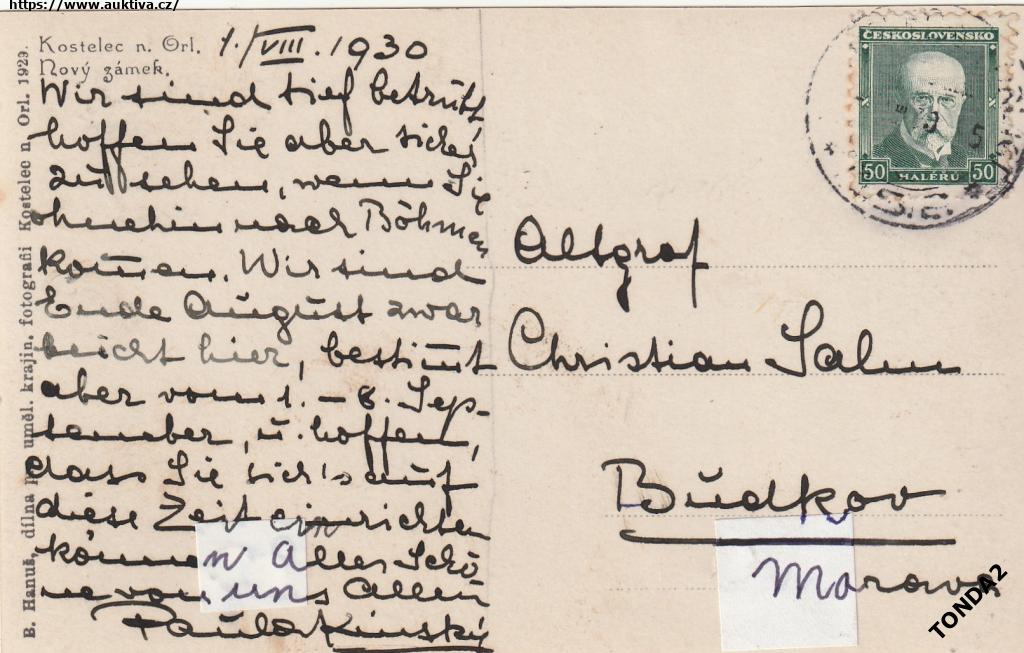 https://www.auktiva.cz/
Kostelec n. Orl.
Nový zámek.
1./VIII. 1930
Wir sind tief betrübt,
hoffen Sie aber sicher
zu sehen, wenn Sie
ohnehin nach Böhmen
kom̄en. Wir sind
Ende August zwar
hier, bestim̄t
aber vom 1. – 8. Sep-
tember, u. hoffen,
dass Sie sich's auf
diese Zeit einrichten
können Alles Schö
ne von uns Allen
Paula Kinský
B. Hanuš, dílna uměl. krajin. fotografií Kostelec n. Orl. 1929.
ČESKOSLOVENSKO
50 HALÉRŮ 50
Altgraf
Christian Salm
Budkov
Morava
TONDA2